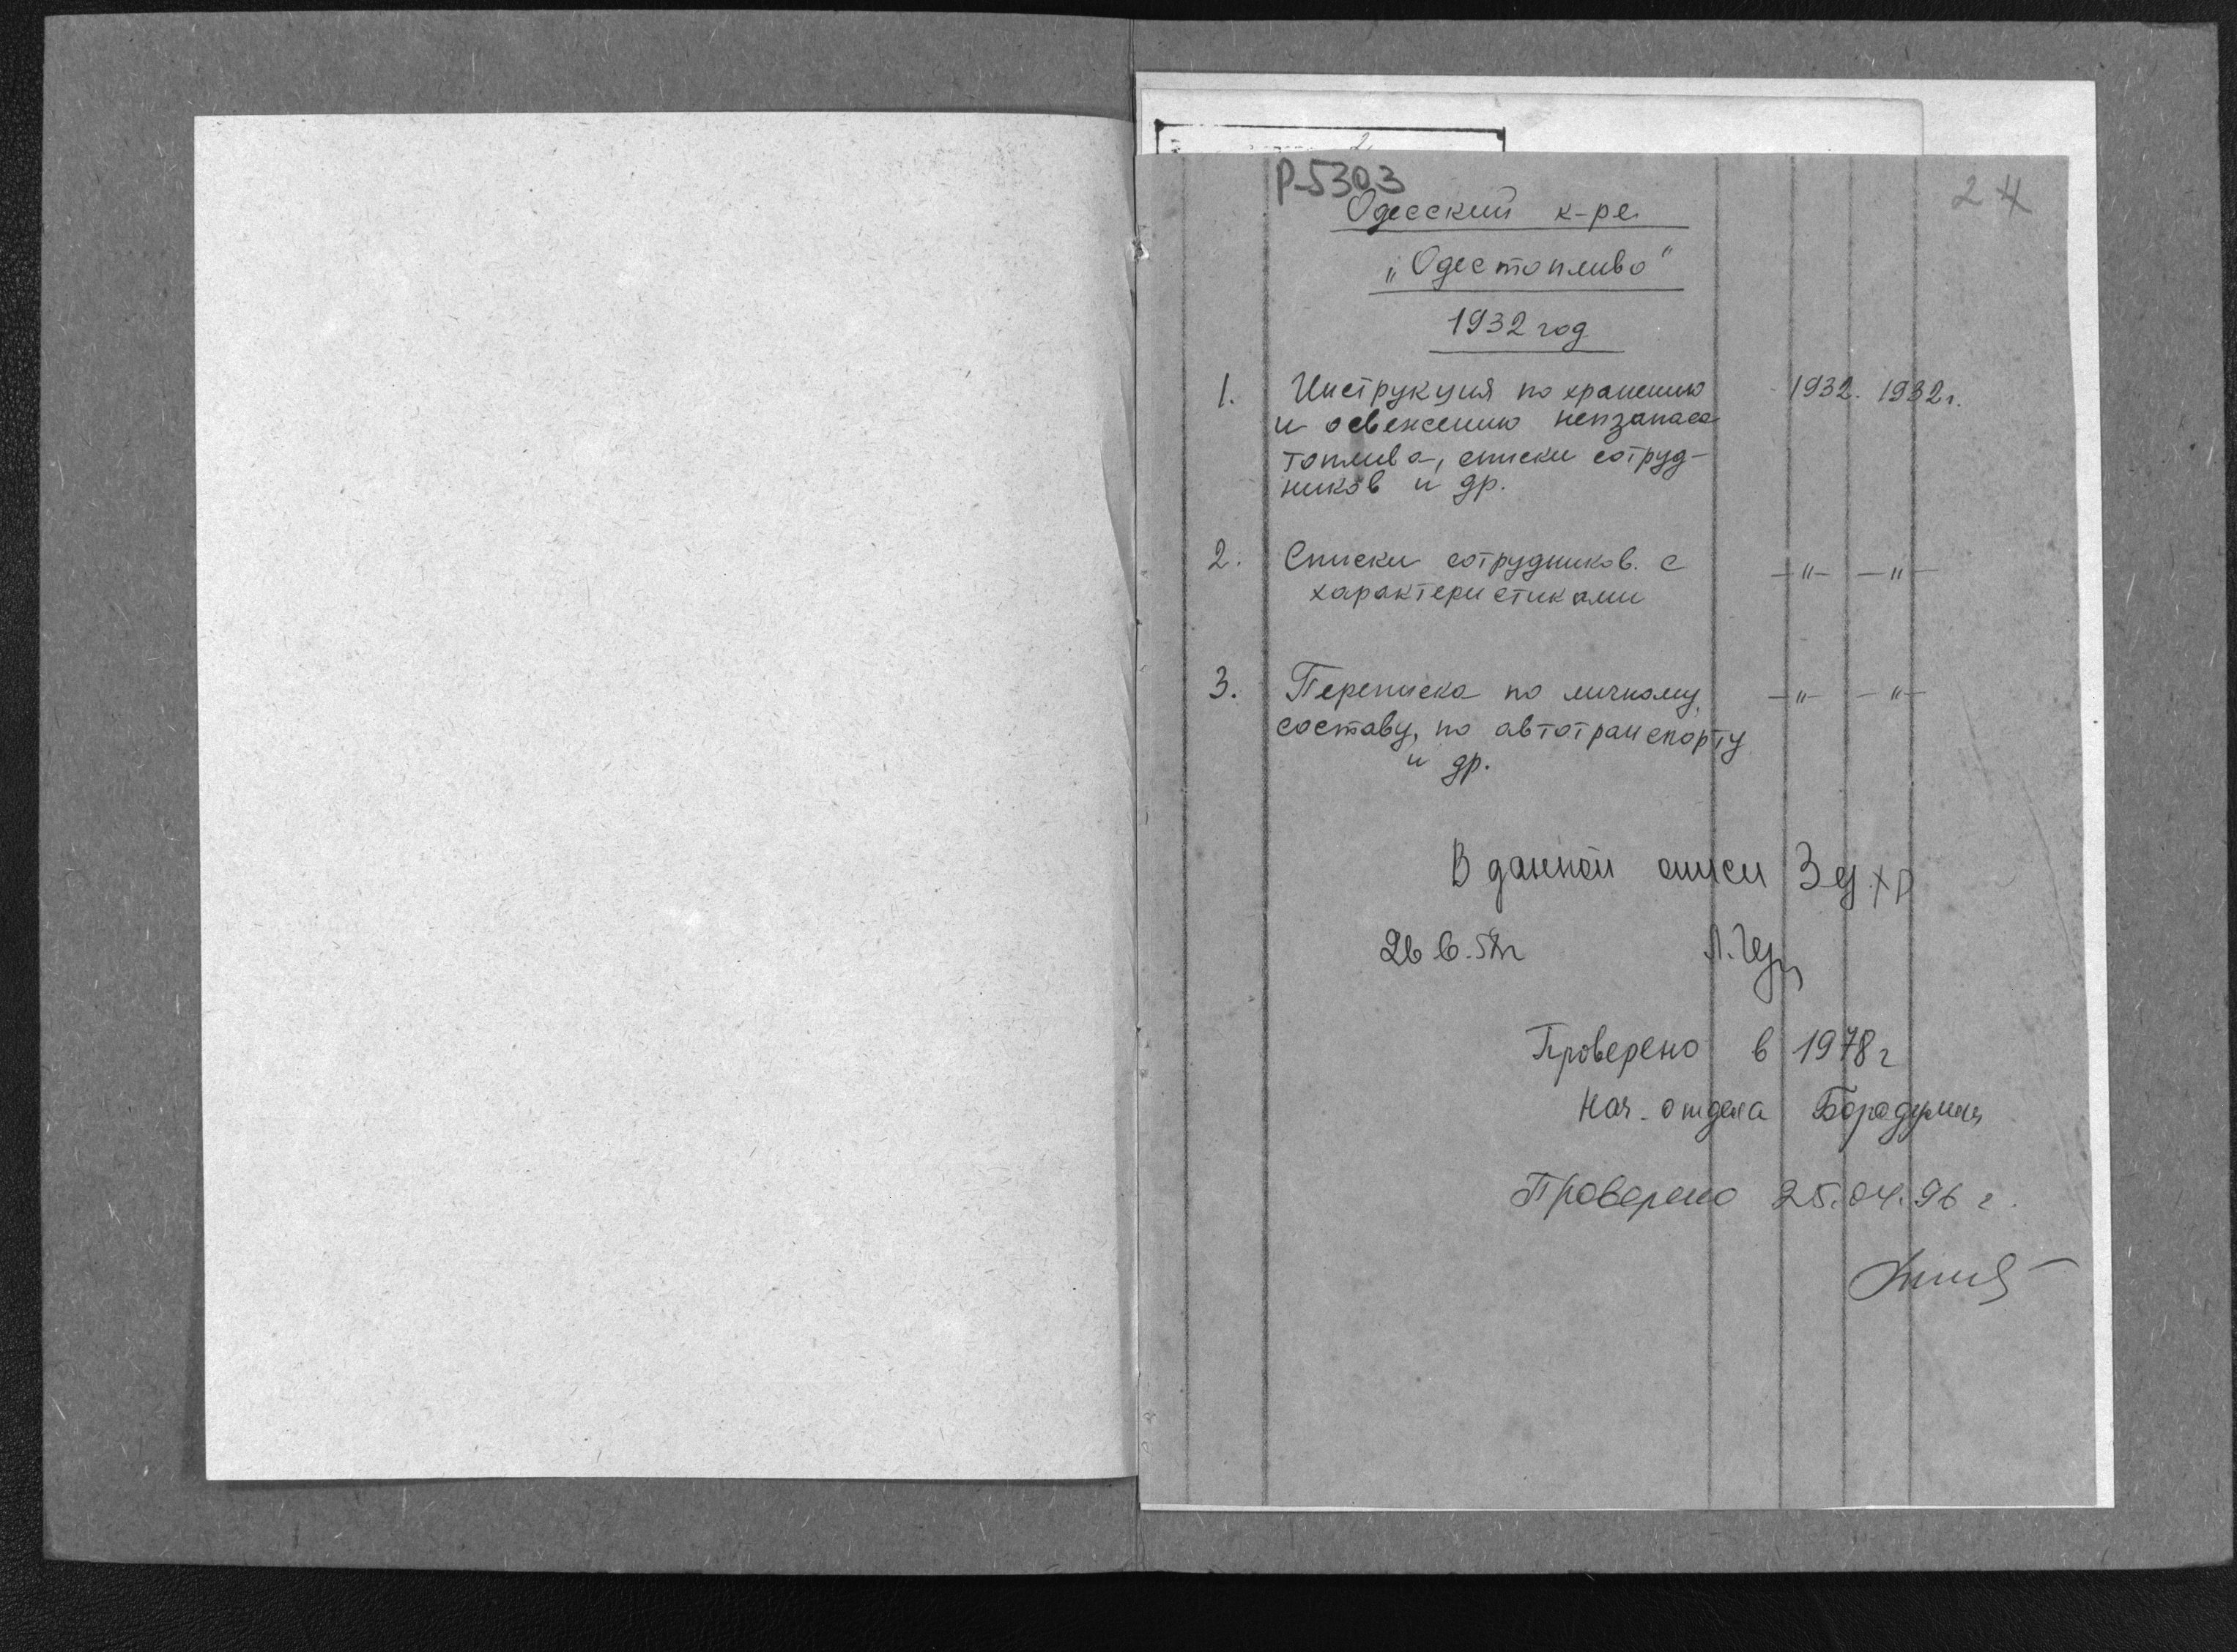 2
Р-5303
2 4
Одесский к-ре
„Одестопливо"
1932 год
1. Инструкция по хранению 1932. 1932 г.
и освежению непзапаса
топлива, списки сотруд-
ников и др.
2. Списки сотрудников. с —"— —"—
характеристиками
3. Переписка по личному —"— —"—
составу, по автотранспорту
и др.
В данной описи 3 ед. хр
26 6.
Проверено в 1978 г
Нач. отдела
Проверено 25.04.96 г.